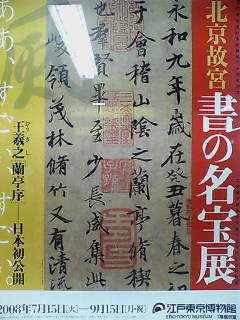 北京故宮
書の名宝展
永和九年歳在癸丑暮春之初
于會稽山陰之蘭亭脩稧
也群賢畢至少長咸集此
峻領茂林脩竹又有清流
ああ、すごい。
王羲之「蘭亭序」─日本初公開
おうぎし
2008年7月15日(火)─9月15日(月・祝)
江戸東京博物館
EDO-TOKYO MUSEUM